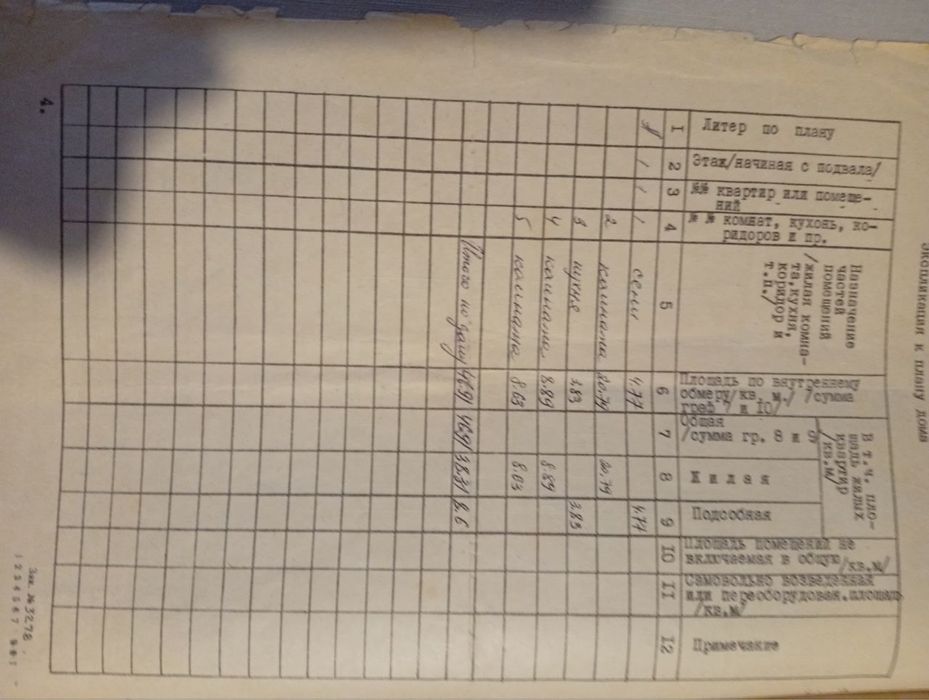 экспликация к плану дома
Литер по плану
Этаж/начиная с подвала/
№№ квартир или помеще-
ний
№ № комнат, кухонь, ко-
ридоров и пр.
Назначение
частей
помещений
/жилая комна-
та,кухня,
коридор и
т.п./
Площадь по внутреннему
обмеру/кв. м./ /сумма
граф 7 и 10/
В т.ч. пло-
щадь жилых
квартир
/кв.м/
Общая
/сумма гр. 8 и 9
Жилая
Подсобная
Площадь помещений не
включаемая в общую/кв.м/
Самовольно возведенная
или переоборудован.площадь
/кв.м/
Примечание
1 2 3 4 5 6 7 8 9 10 11 12
А 1 1 1 сени 4.77 4.77
2 комната 20.79 20.79
3 кухня 3.83 3.83
4 комната 8.89 8.89
5 комната 8.63 8.63
Итого по дому 46.91 46.91 38.31 8.6
4.
Зак. № 3278